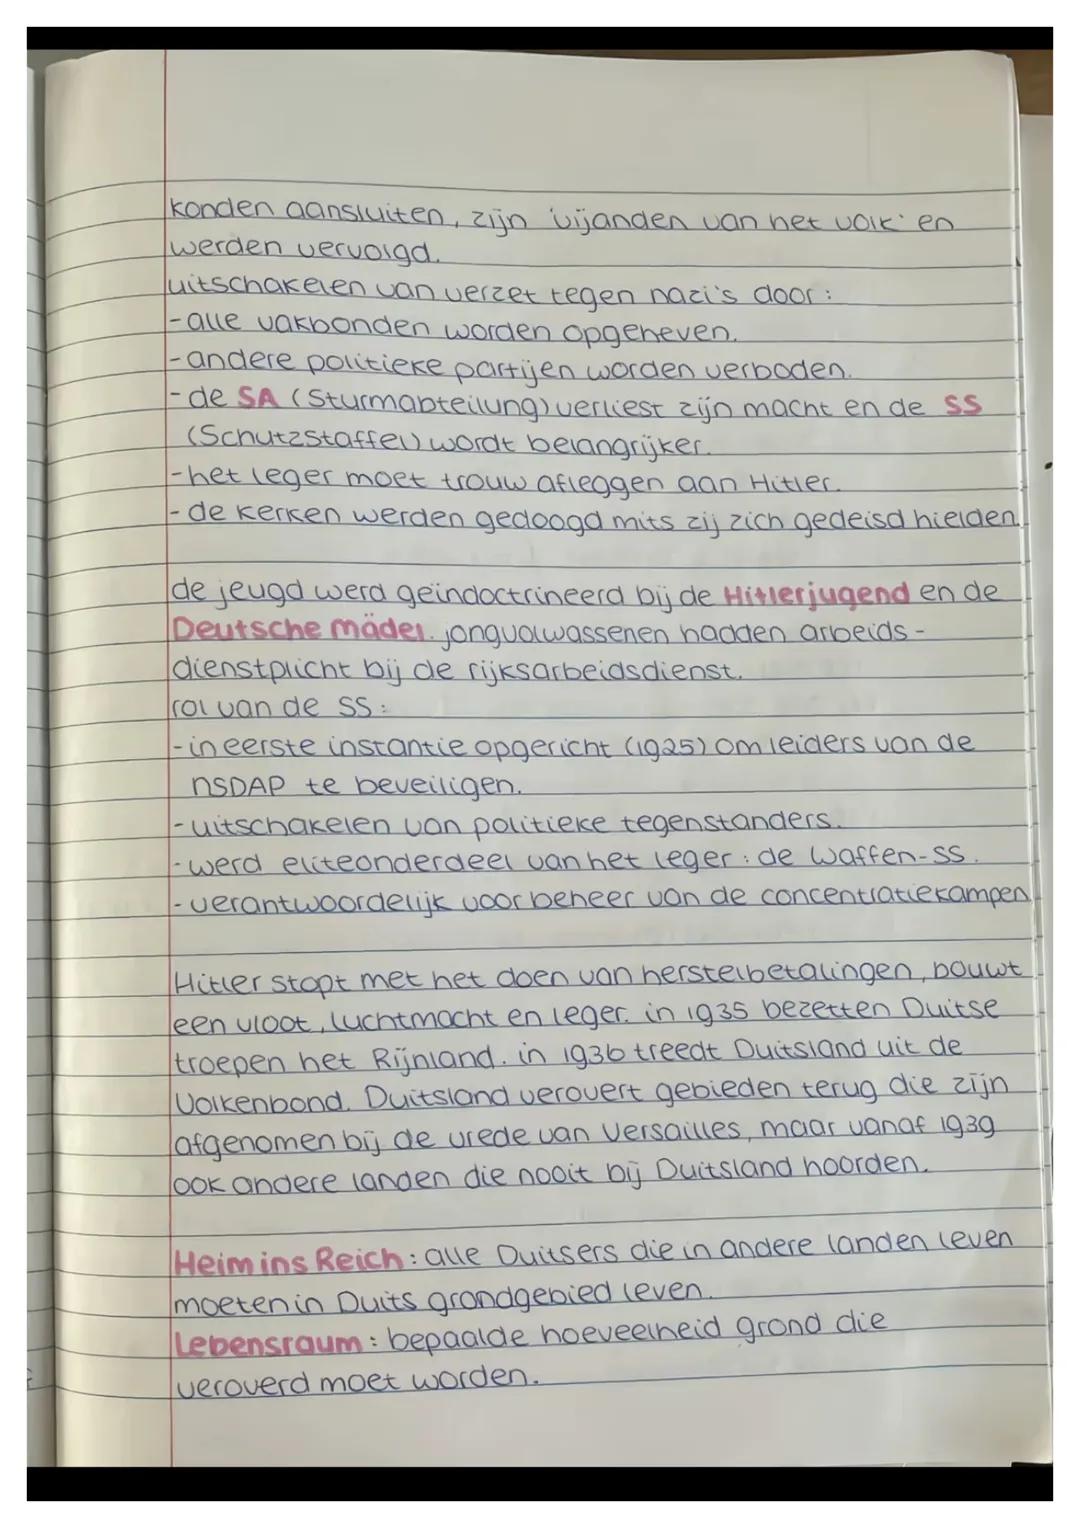 konden aansluiten, zijn 'vijanden van het volk' en
werden vervolgd.
uitschakelen van verzet tegen nazi's door:
-alle vakbonden worden opgeheven.
-andere politieke partijen worden verboden.
-de SA (Sturmabteilung) verliest zijn macht en de SS
(Schutzstaffel) wordt belangrijker.
-het leger moet trouw afleggen aan Hitler.
-de kerken werden gedoogd mits zij zich gedeisd hielden.
de jeugd werd geïndoctrineerd bij de Hitlerjugend en de
Deutsche mädel. jongvolwassenen hadden arbeids-
dienstplicht bij de rijksarbeidsdienst.
rol van de SS:
-in eerste instantie opgericht (1925) om leiders van de
NSDAP te beveiligen.
-uitschakelen van politieke tegenstanders.
-werd eliteonderdeel van het leger: de Waffen-SS.
-verantwoordelijk voor beheer van de concentratiekampen
Hitler stopt met het doen van herstelbetalingen, bouwt
een vloot, luchtmacht en leger. in 1935 bezetten Duitse
troepen het Rijnland. in 1936 treedt Duitsland uit de
Volkenbond. Duitsland verovert gebieden terug die zijn
afgenomen bij de vrede van Versailles, maar vanaf 1939
ook andere landen die nooit bij Duitsland hoorden.
Heim ins Reich: alle Duitsers die in andere landen leven
moeten in Duits grondgebied leven.
Lebensraum: bepaalde hoeveelheid grond die
veroverd moet worden.